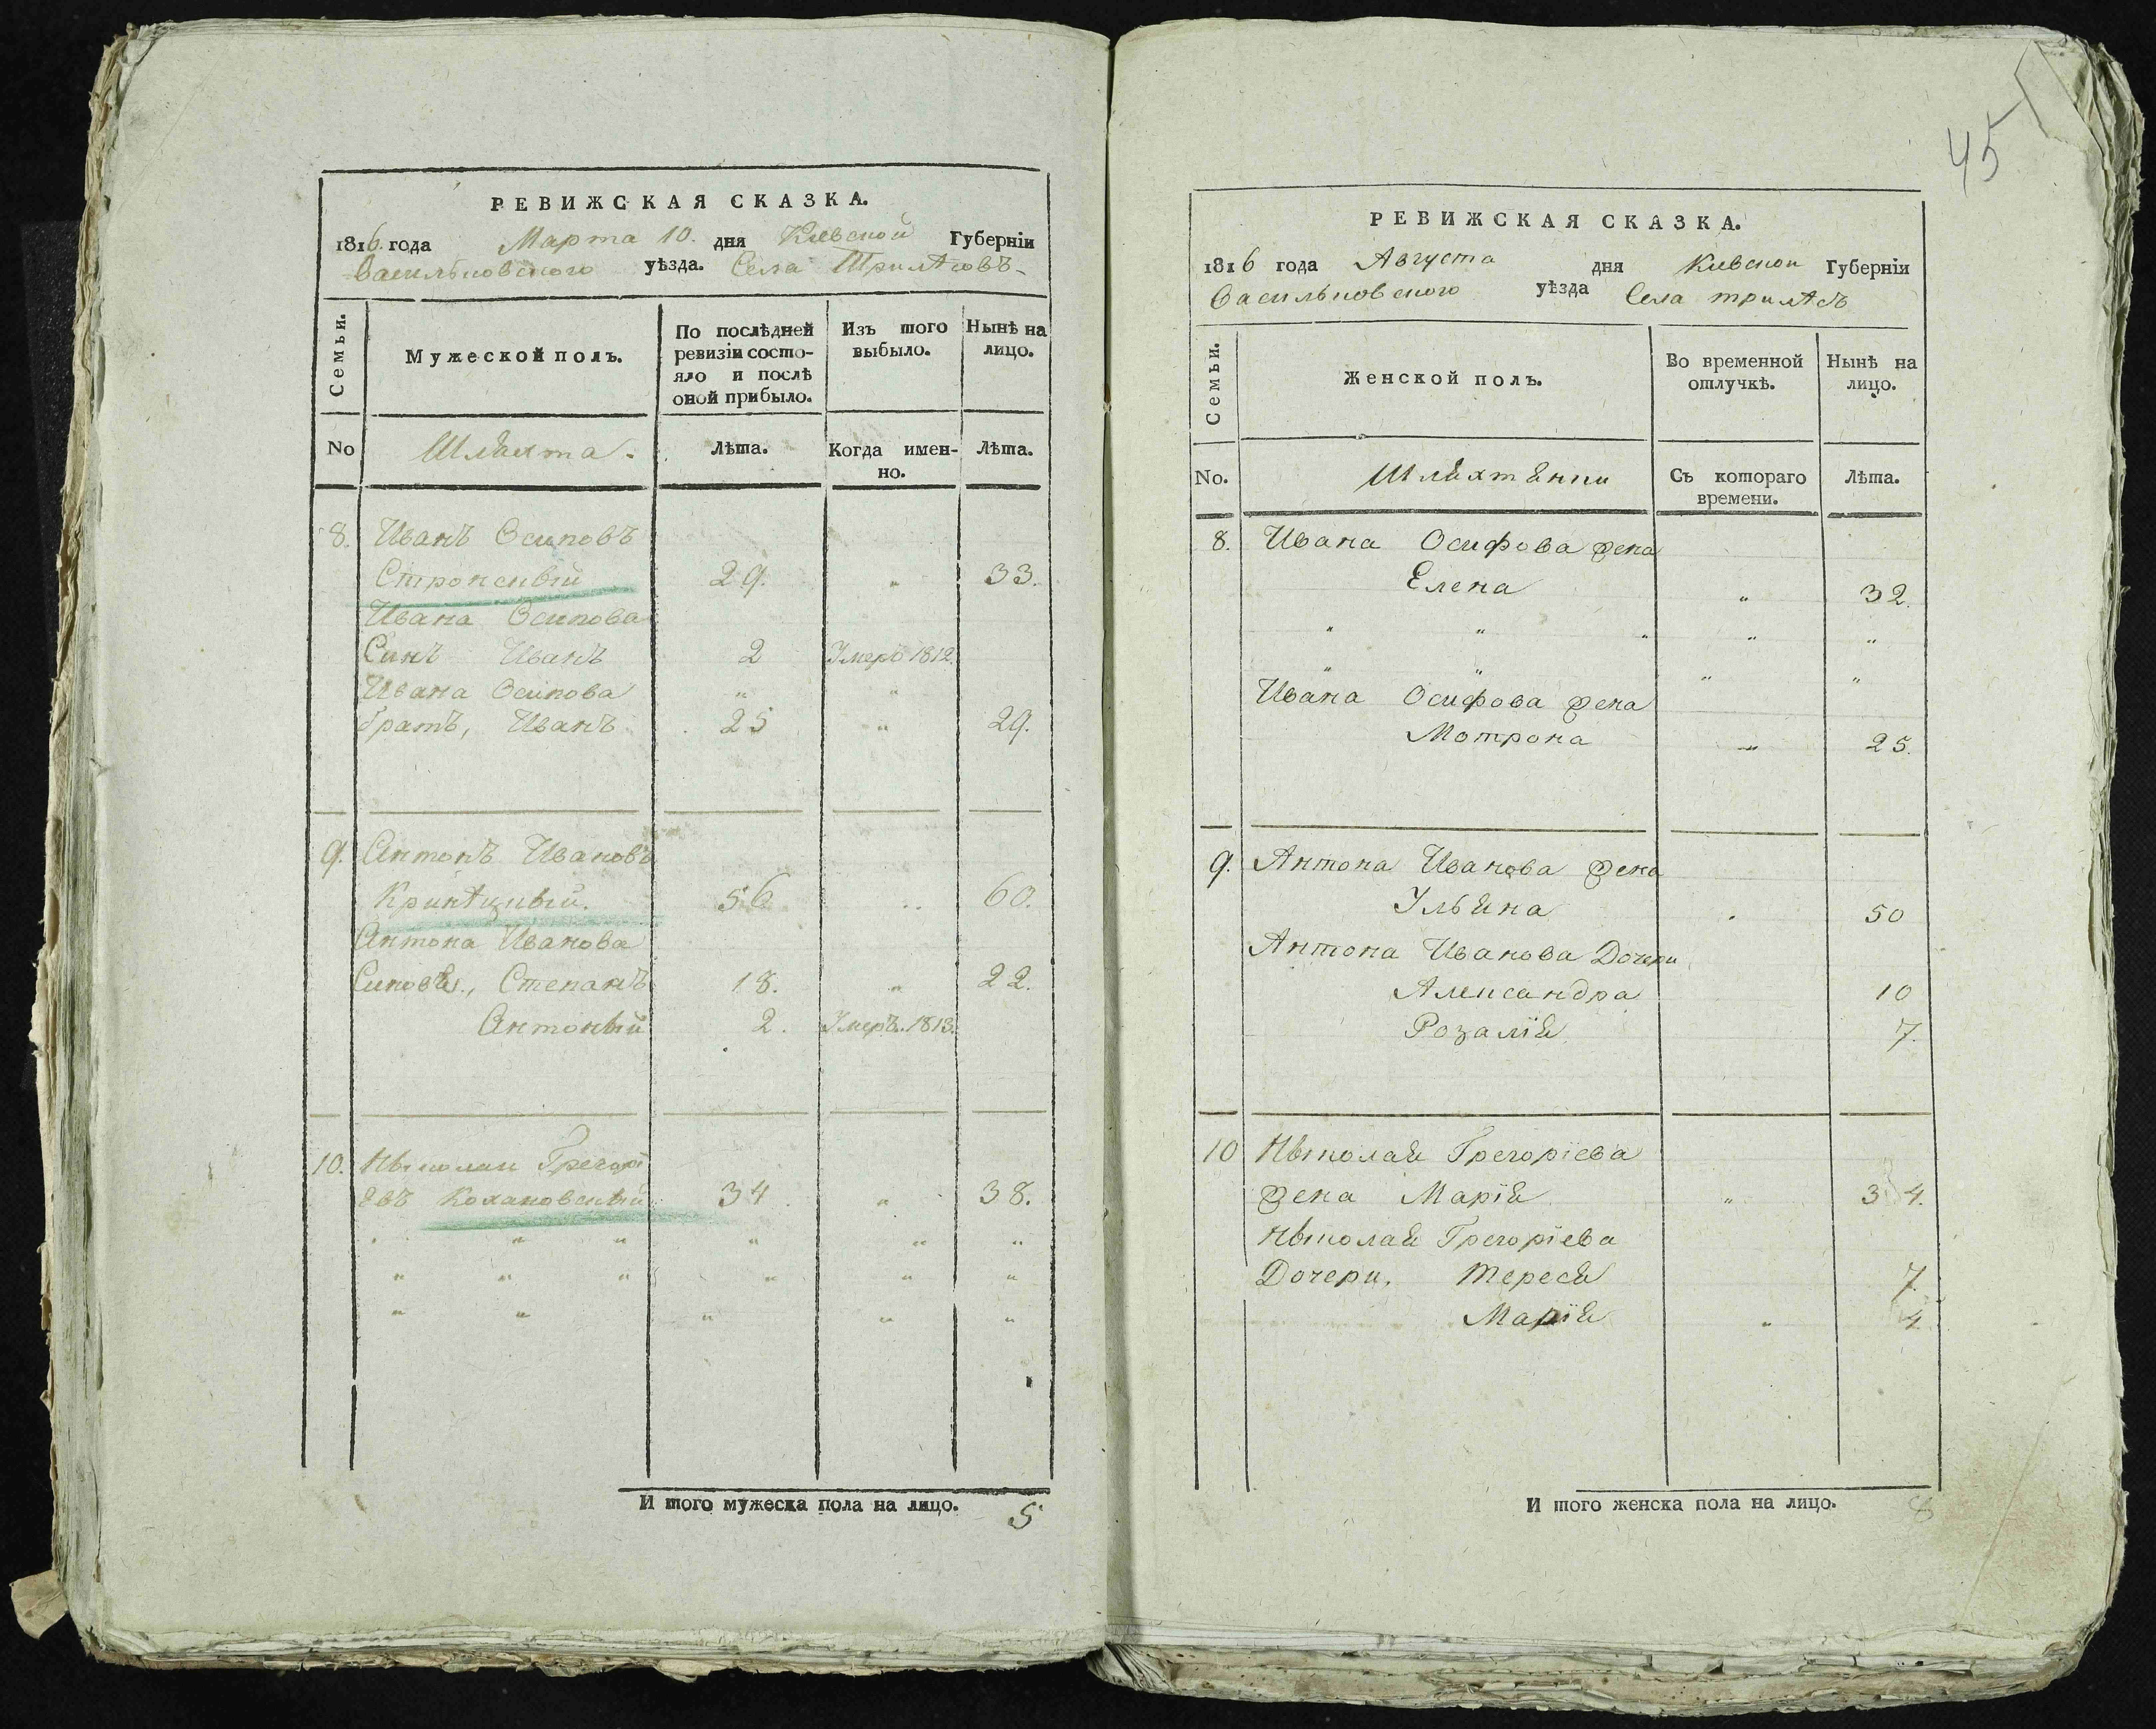 РЕВИЖСКАЯ СКАЗКА.
1816. года Марта 10. дня Киевской Губерніи
Васильковского уѣзда. Села Трилѣсовъ
Семьи.
Мужеской полъ.
По послѣдней ревизіи состояло и послѣ оной прибыло.
Изъ того выбыло.
Нынѣ на лицо.
No
Шляхта.
Лѣта.
Когда именно.
Лѣта.
8. Иванъ Осиповъ
29. " 33.
Ивана Осипова
Синъ Иванъ 2 Умеръ 1812.
Ивана Осипова " "
братъ, Иванъ 25 " 29.
9. Антонъ Ивановъ
Кринѣцкій. 56 .. 60.
Антона Иванова
Синовя, Степанъ 18. " 22.
Антоній 2. Умеръ. 1813.
10. Николай Грегорі
евъ Кохановскій 34. " 38.
" " " " " "
" " " " " "
" " " " "
И того мужеска пола на лицо. 5
45
РЕВИЖСКАЯ СКАЗКА.
1816 года Августа дня Киевской Губерніи
Васильковского уѣзда Села трилѣсъ
Семьи.
Женской полъ.
Во временной отлучкѣ.
Нынѣ на лицо.
No.
Шляхтянки
Съ котораго времени.
Лѣта.
8. Ивана Осифова жена
Елена " 32.
" " " " "
" " " "
Ивана Осифова жена
Мотрона " 25.
9. Антона Иванова жена
Ульяна . 50
Антона Иванова Дочери
Александра 10
Розалія 7.
10 Николая Грегоріева
жена Марія " 34.
Николая Грегоріева
Дочери. Тереся 7.
Марія " 4
И того женска пола на лицо. 8